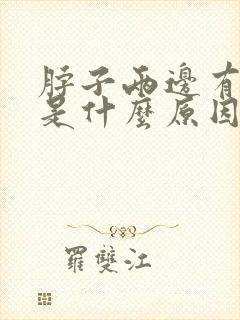 脖子兩邊有
是什麼原因
羅雙江